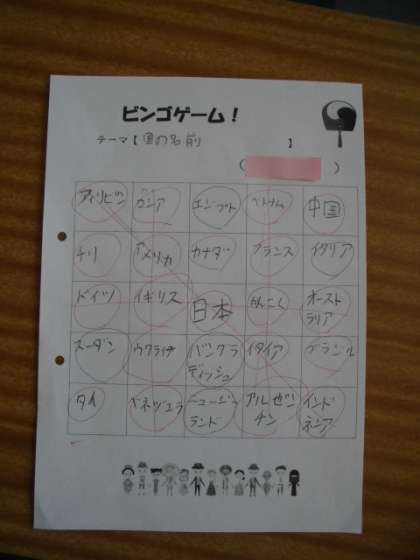 ビンゴゲーム!
テーマ【国の名前 】
( )
フィリピン ロシア エジプト ベトナム 中国
チリ アメリカ カナダ フランス イタリア
ドイツ イギリス 日本 かんこく オーストラリア
スーダン ウクライナ バングラディッシュ ブラジル
タイ ベネズエラ ニュージーランド アルゼンチン インドネシア